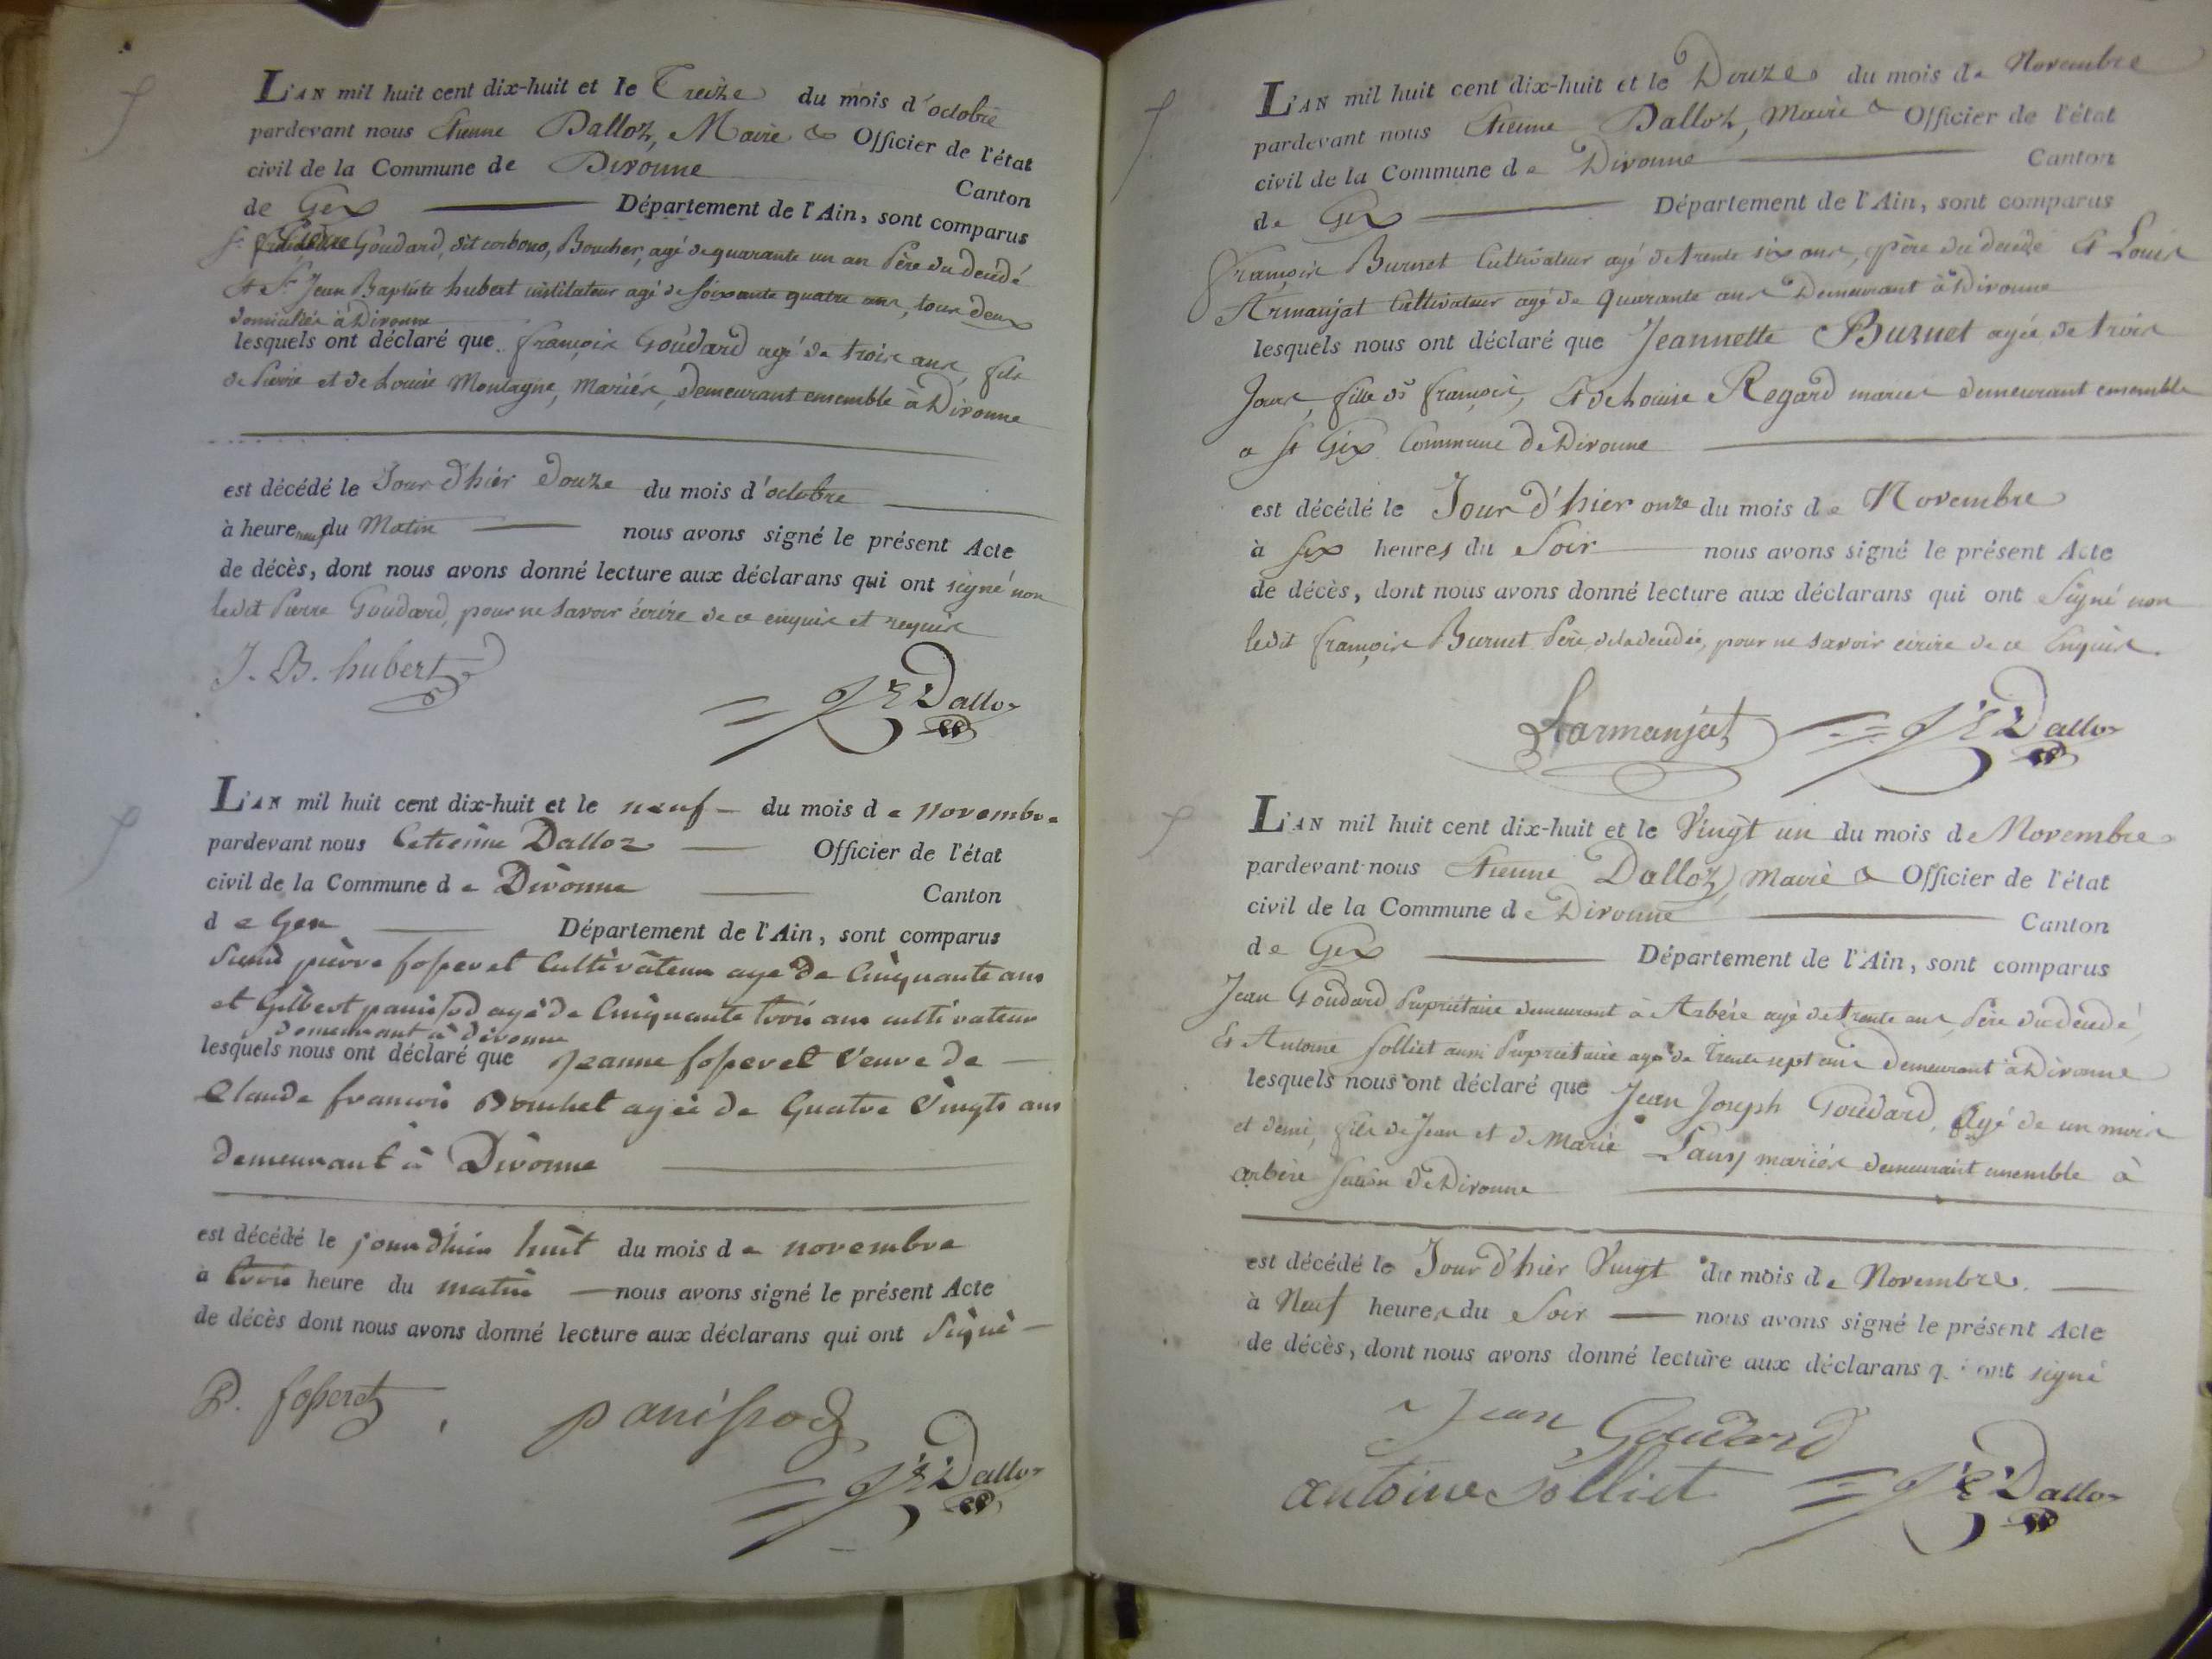 L'AN mil huit cent dix-huit et le Treize du mois d'octobre
pardevant nous Etienne Dalloz, Maire & Officier de l'état
civil de la Commune de Divonne
Canton
de Gex Département de l'Ain, sont comparus
Sr Pierre Goudard, dit corbono, Boucher, agé de quarante un an Père du decédé
Et Sr Jean Baptiste hubert instituteur agé de soixante quatre ans, tous deux
domiciliés à Divonne
lesquels ont déclaré que françois Goudard agé de trois ans, fils
de Pierre et de Louise Montagne, Mariés, demeurant ensemble à Divonne
est décédé le Jour d'hier douze du mois d'octobre
à heure neuf du Matin nous avons signé le présent Acte
de décès, dont nous avons donné lecture aux déclarans qui ont signé non
ledit Pierre Goudard, pour ne savoir écrire de ce enquis et requis
J. B. hubert
Dalloz
L'AN mil huit cent dix-huit et le neuf du mois de novembre
pardevant nous Dalloz Officier de l'état
civil de la Commune de Divonne Canton
de Gex Département de l'Ain, sont comparus
pierre fosseret Cultivateur agé de Cinquante ans
et Gilbert panissod agé de Cinquante trois ans cultivateur
demeurant à divonne
lesquels nous ont déclaré que jeanne fosseret Veuve de
Claude francois Bouchet agée de Quatre Vingts ans
demeurant à Divonne
est décédé le jour dhier huit du mois de novembre
à trois heure du matin nous avons signé le présent Acte
de décès dont nous avons donné lecture aux déclarans qui ont signé
P. fosseret panissod
Dalloz
L'AN mil huit cent dix-huit et le Douze du mois de Novembre
pardevant nous Etienne Dalloz, Maire & Officier de l'état
civil de la Commune de Divonne Canton
de Gex Département de l'Ain, sont comparus
françois Burnet Cultivateur agé de trente six ans, père du decedé Et Louis
Armanjat Cultivateur agé de quarante ans Demeurant à Divonne
lesquels nous ont déclaré que Jeannette Burnet agée de trois
Jours, fille de françois, Et de Louise Regard mariés demeurant ensemble
a St Gix Commune de Divonne
est décédé le Jour d'hier onze du mois de Novembre
à six heures du Soir nous avons signé le présent Acte
de décès, dont nous avons donné lecture aux déclarans qui ont Signé non
ledit françois Burnet Père de la decedée, pour ne savoir écrire de ce Enquis.
Larmanjat Dalloz
L'AN mil huit cent dix-huit et le Vingt un du mois de Novembre
pardevant nous Etienne Dalloz, Maire & Officier de l'état
civil de la Commune de Divonne Canton
de Gex Département de l'Ain, sont comparus
Jean Goudard Propriétaire demeurant à Arbère agé de trente ans, Père du décedé,
Et Antoine Solliet aussi Propriétaire agé de Trente sept ans Demeurant à Divonne
lesquels nous ont déclaré que Jean Joseph Goudard, Agé de un mois
et demi, fils de Jean et de Marie Lany mariés demeurant ensemble à
arbère section de Divonne
est décédé le Jour d'hier Vingt du mois de Novembre.
à Neuf heures du Soir nous avons signé le présent Acte
de décès, dont nous avons donné lecture aux déclarans qui ont signé
Jean Goudard
antoine Solliet Dalloz